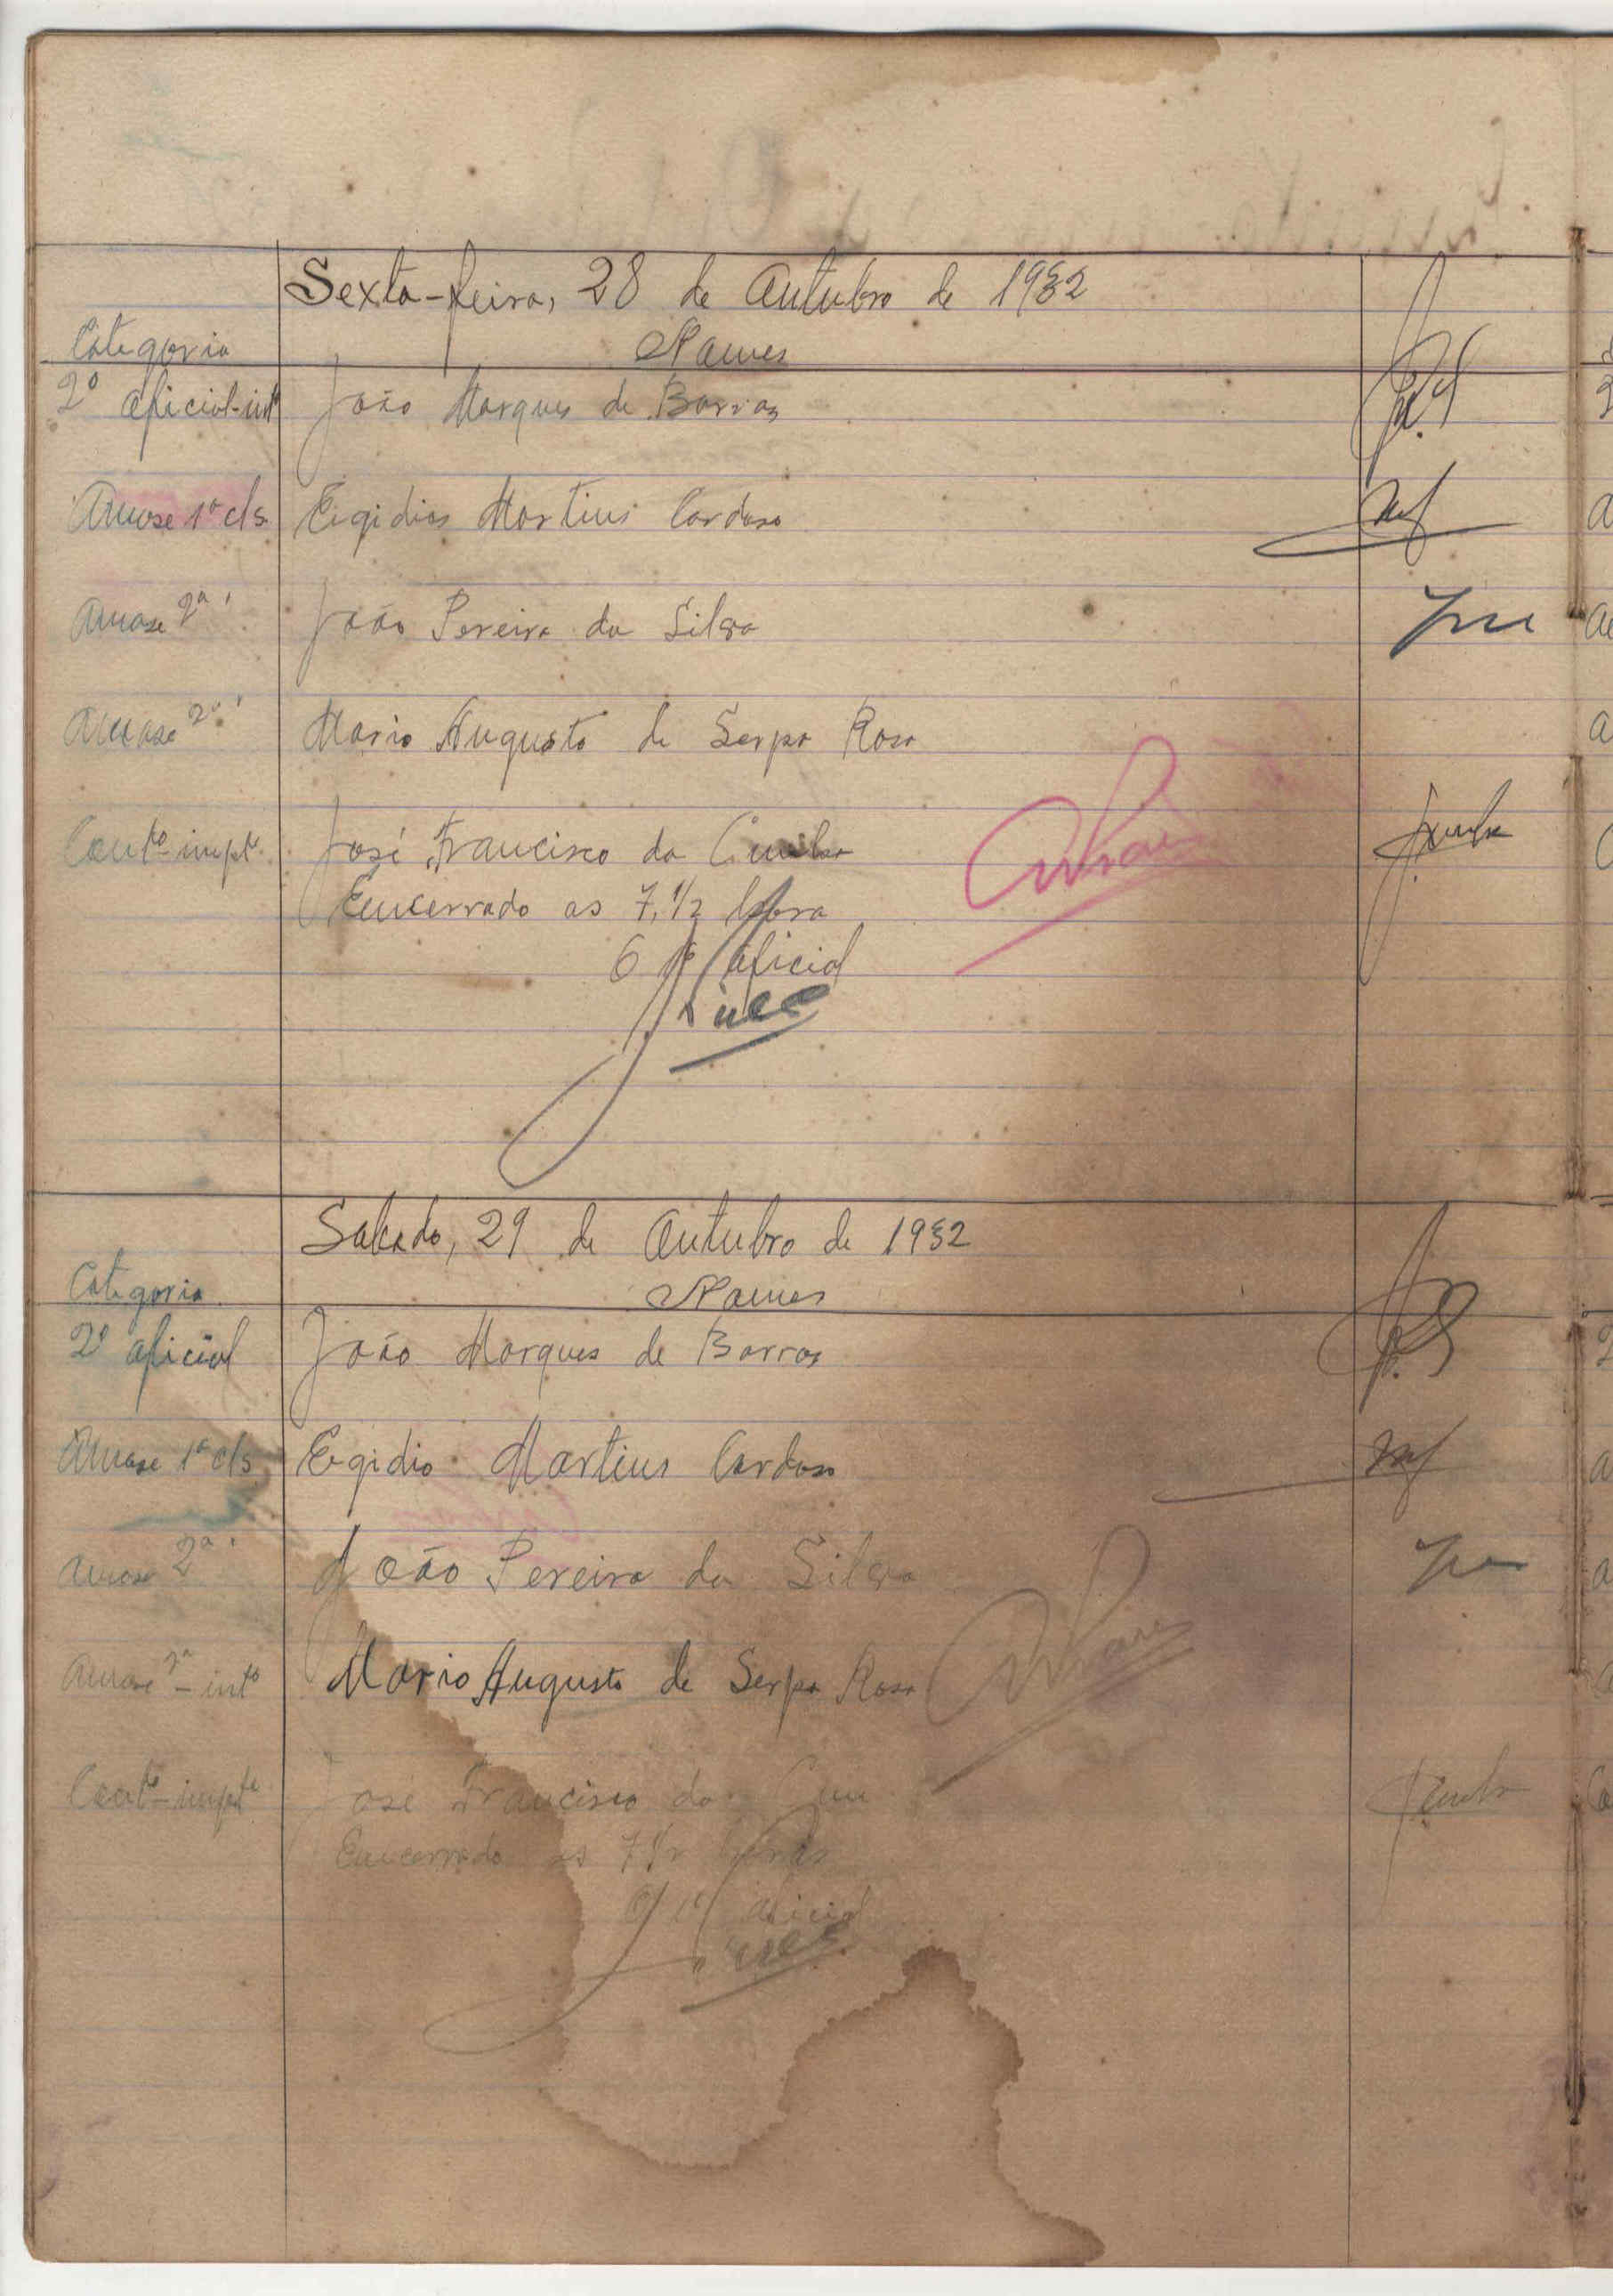 Sexta-feira, 28 de Outubro de 1932
Categoria Nomes
2º oficial-intº João Marques de Barros
Amase 1ª cls. Egidios Martins Cardoso
Amase 2ª " João Pereira da Silva
Amase 2ª " Mario Augusto de Serpa Rosa
Contº-impte José Francisco da Cunha
Encerrado as 7,1/2 hora
O 1º oficial
Sabado, 29 de Outubro de 1932
Categoria Nomes
2º oficial João Marques de Barros
Amase 1ª cls Egidio Martins Cardoso
Amase 2ª " João Pereira da Silva
Amase 2ª - intº Mario Augusto de Serpa Rosa
Contº-impte José Francisco da Cun
Encerrado as 7 1/2 horas
O 1º oficial